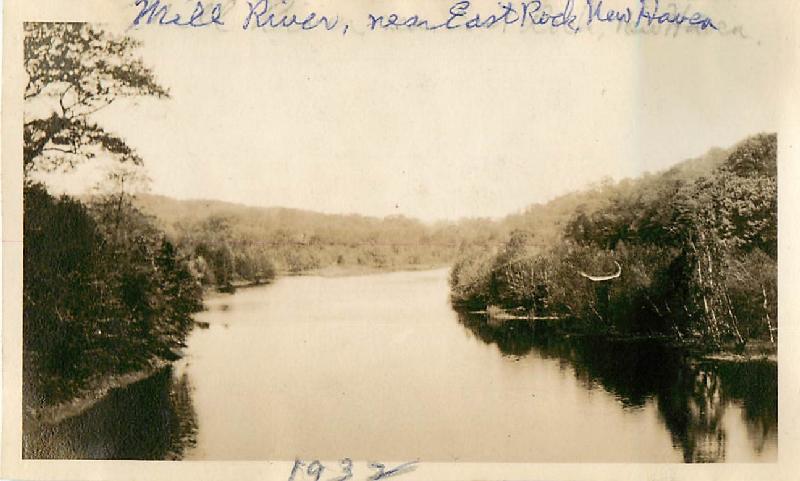 Mill River, near East Rock, New Haven
1932